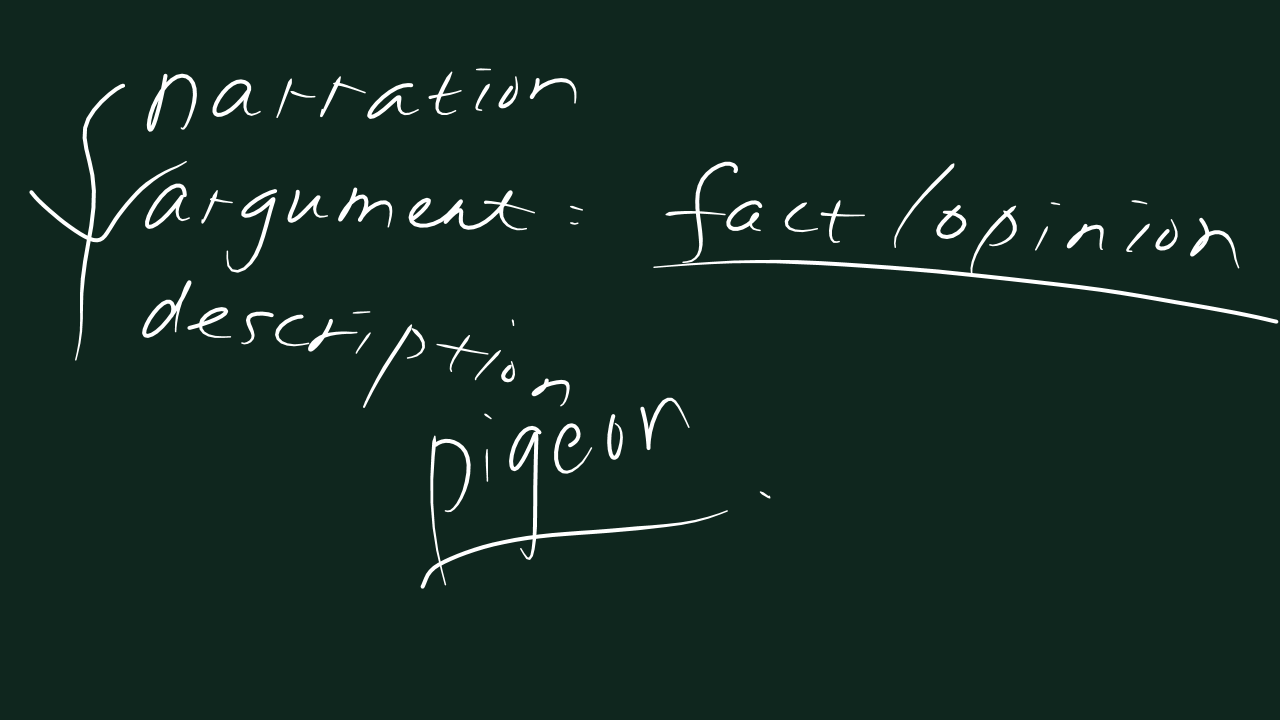 narration
argument: fact/opinion
description
pigeon